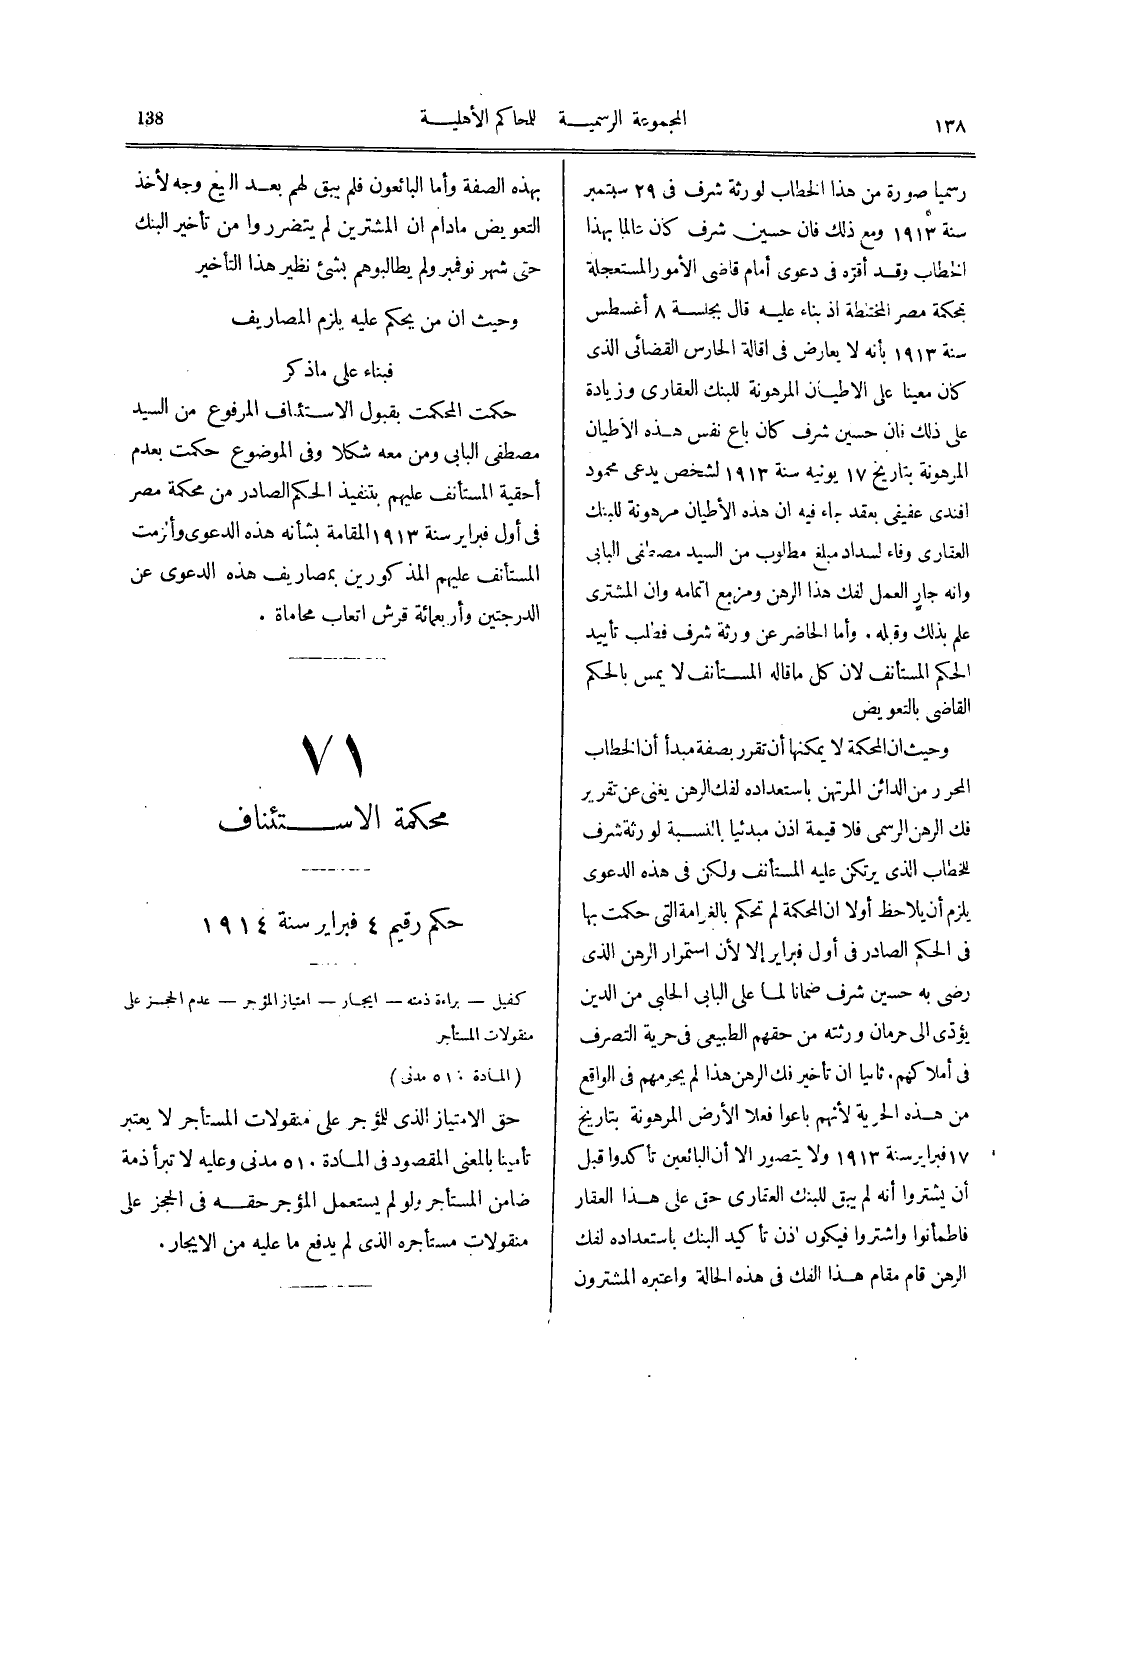 ١٣٨
المجموعة الرسمية للمحاكم الأهلية
138
رسميا صورة من هذا الخطاب لورثة شرف فى ٢٩ سبتمبر
سنة ١٩١٣ ومع ذلك فان حسين شرف كان عالما بهذا
الخطاب وقد أقره فى دعوى أمام قاضى الأمور المستعجلة
بمحكمة مصر المختلطة اذ بناء عليه قال بجلسة ٨ أغسطس
سنة ١٩١٣ بأنه لا يعارض فى اقالة الحارس القضائى الذى
كان معينا على الاطيان المرهونة للبنك العقارى وزيادة
على ذلك فان حسين شرف كان باع نفس هذه الأطيان
المرهونة بتاريخ ١٧ يونيه سنة ١٩١٣ لشخص يدعى محمود
افندى عفيفى بعقد جاء فيه ان هذه الأطيان مرهونة للبنك
العقارى وفاء لسداد مبلغ مطلوب من السيد مصطفى البابى
وانه جار العمل لفك هذا الرهن ومزمع اتمامه وان المشترى
علم بذلك وقبله . وأما الحاضر عن ورثة شرف فطلب تأييد
الحكم المستأنف لان كل ماقاله المستأنف لا يمس بالحكم
القاضى بالتعويض
وحيث ان المحكمة لا يمكنها أن تقرر بصفة مبدأ أن الخطاب
المحرر من الدائن المرتهن باستعداده لفك الرهن يغنى عن تقرير
فك الرهن الرسمى فلا قيمة اذن مبدئيا بالنسبة لورثة شرف
للخطاب الذى يرتكن عليه المستأنف ولكن فى هذه الدعوى
يلزم أن يلاحظ أولا ان المحكمة لم تحكم بالغرامة التى حكمت بها
فى الحكم الصادر فى أول فبراير إلا لأن استمرار الرهن الذى
رضى به حسين شرف ضمانا لما على البابى الحلبى من الدين
يؤدى الى حرمان ورثته من حقهم الطبيعى فى حرية التصرف
فى أملاكهم . ثانيا ان تأخير فك الرهن هذا لم يحرمهم فى الواقع
من هذه الحرية لأنهم باعوا فعلا الأرض المرهونة بتاريخ
١٧ فبراير سنة ١٩١٣ ولا يتصور الا أن البائعين تأكدوا قبل
أن يشتروا أنه لم يبق للبنك العقارى حق على هذا العقار
فاطمأنوا واشتروا فيكون اذن تأكيد البنك باستعداده لفك
الرهن قام مقام هذا الفك فى هذه الحالة واعتبره المشترون
بهذه الصفة وأما البائعون فلم يبق لهم بعد البيع وجه لأخذ
التعويض مادام ان المشترين لم يتضرروا من تأخير البنك
حتى شهر نوفمبر ولم يطالبوهم بشئ نظير هذا التأخير
وحيث ان من يحكم عليه يلزم المصاريف
فبناء على ماذكر
حكمت المحكمت بقبول الاستئناف المرفوع من السيد
مصطفى البابى ومن معه شكلا وفى الموضوع حكمت بعدم
أحقية المستأنف عليهم بتنفيذ الحكم الصادر من محكمة مصر
فى أول فبراير سنة ١٩١٣ المقامة بشأنه هذه الدعوى وألزمت
المستأنف عليهم المذكورين بمصاريف هذه الدعوى عن
الدرجتين وأربعمائة قرش اتعاب محاماة .
٧١
محكمة الاستئناف
حكم رقيم ٤ فبراير سنة ١٩١٤
كفيل — براءة ذمته — ايجار — امتياز المؤجر — عدم الحجز على
منقولات المستأجر
(المادة ٥١٠ مدنى)
حق الامتياز الذى للمؤجر على منقولات المستأجر لا يعتبر
تأمينا بالمعنى المقصود فى المادة ٥١٠ مدنى وعليه لا تبرأ ذمة
ضامن المستأجر ولو لم يستعمل المؤجر حقه فى الحجز على
منقولات مستأجره الذى لم يدفع ما عليه من الايجار .